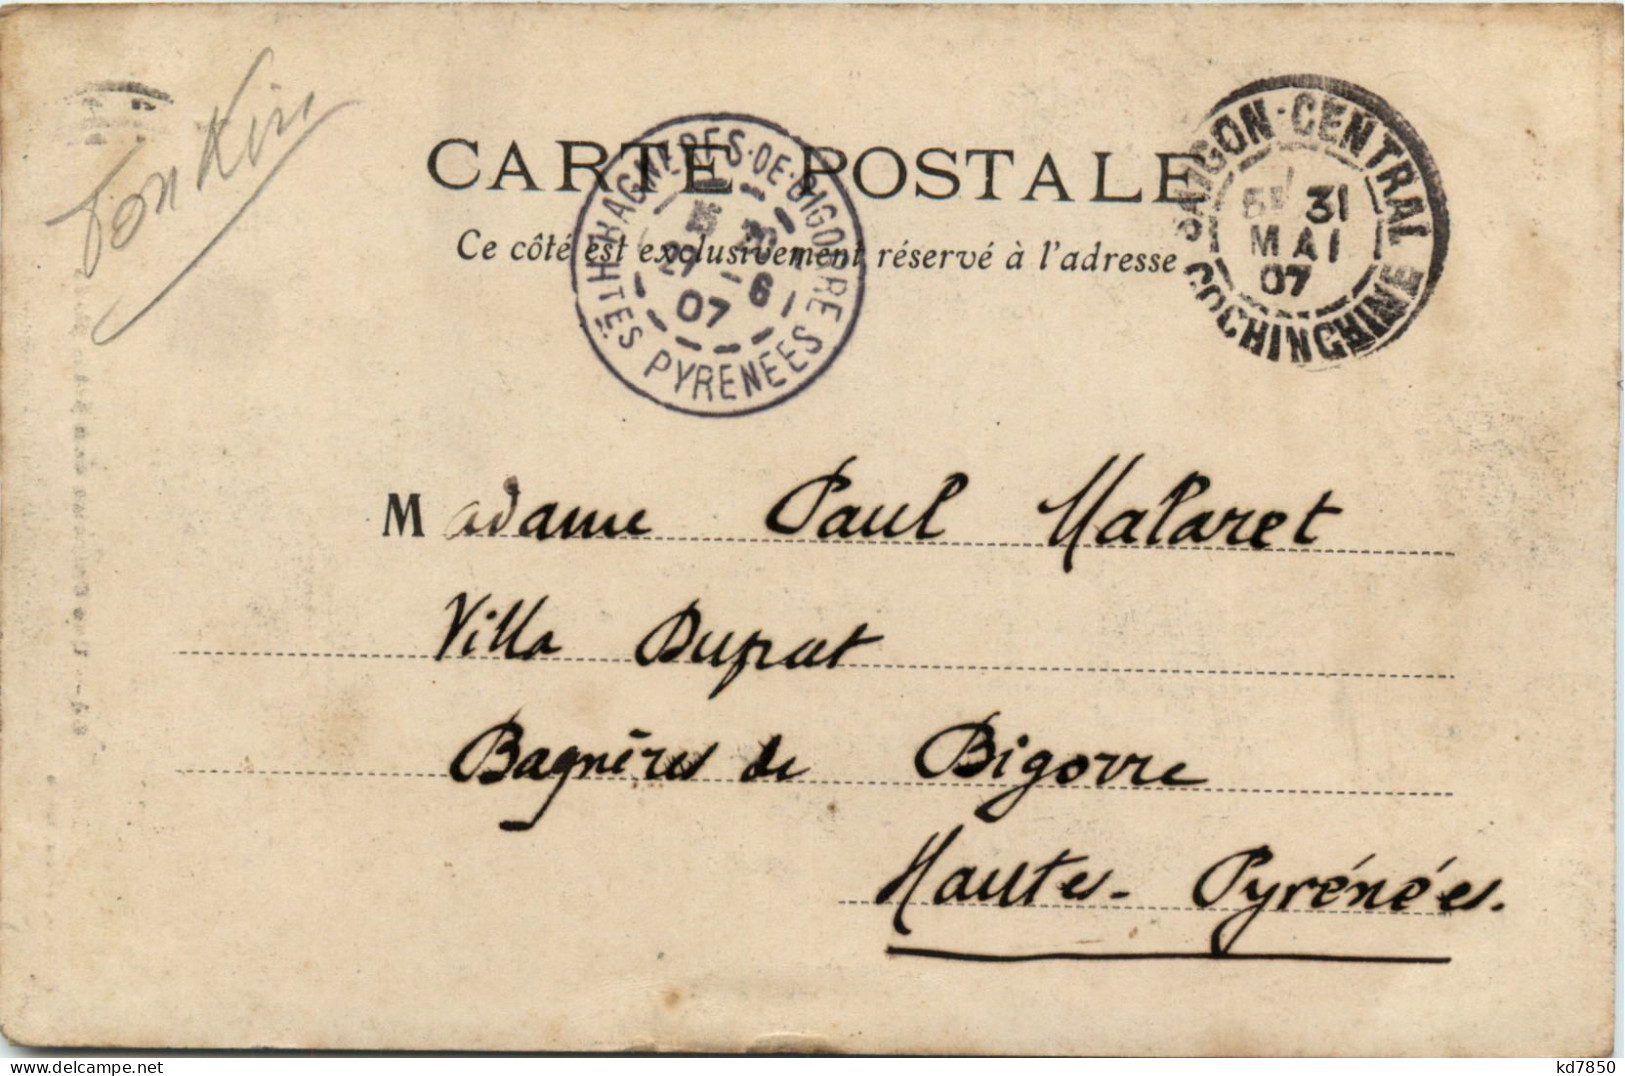 Tonkin
CARTE POSTALE
Ce côté est exclusivement réservé à l'adresse
BAGNERES-DE-BIGORRE
27 - 6
07
HTES PYRENEES
SAIGON-CENTRAL
31
MAI
07
COCHINCHINE
Madame Paul Malaret
Villa Duprat
Bagnères de Bigorre
Hautes-Pyrénées.
kd7850